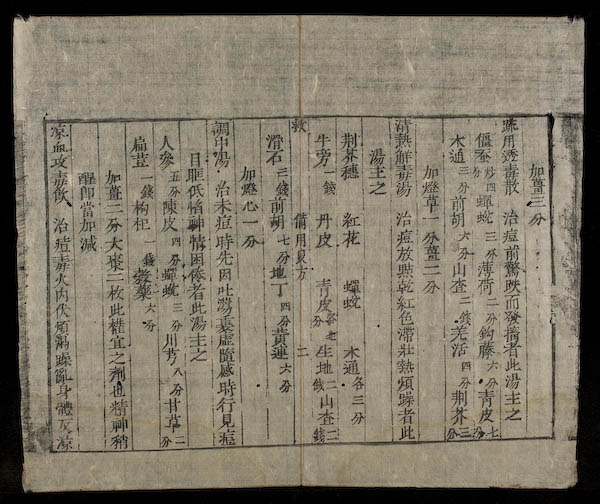 加薑三分
疏用透毒散 治痘前驚跌而發搐者此湯主之
僵蚕炒四分 蟬蛻三分 薄荷二分 鈎藤六分 青皮七分
木通三分 前胡六分 山查二錢 羌活四分 荆芥三分
加燈草一分薑二分
清熱觧毒湯 治痘放㸃乾紅色滯壯熱煩躁者此
湯主之
荆芥穗 紅花 蟬蛻 木通各三分
牛旁一錢 丹皮 青皮 生地 山查二錢
救 備用良方 二
滑石三錢 前胡七分 地丁四分 黄連六分
加燈心一分
調中湯 治未痘時先因吐瀉 虛隨感時行見痘
目眶低 神情困倦者此湯主之
人參五分 陳皮四分 蟬蛻三分 川芎八分 甘草二分
扁荳一錢 枸杞一錢 藥六分
加薑二分大棗二枚此權宜之劑也精神稍
醒即當加减
凉血攻毒飲 治痘毒火内伏煩渴躁亂身體反凉